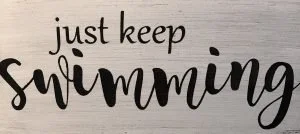 just keep
swimming